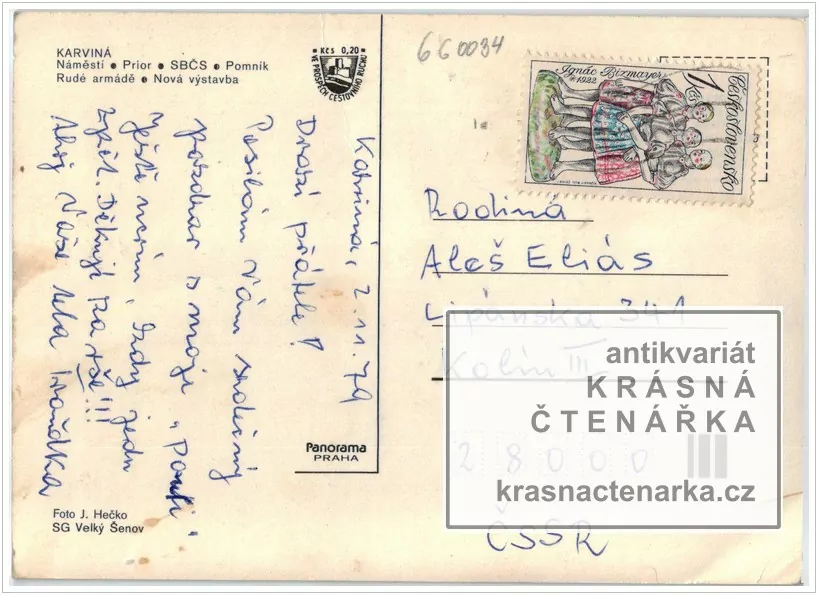 KARVINÁ
Náměstí ● Prior ● SBČS ● Pomník
Rudé armádě ● Nová výstavba
Kčs 0,20
VE PROSPĚCH CESTOVNÍHO RUCHU
660034
Ignác Bizmayer
*1922
1 Kčs
Československo
Karviná, 2.11.79
Drazí přátelé!
Posílám Vám srdečný
pozdrav z mojí „
Ještě nevím, kdy jedu
zpět. Děkuji za vše!!!
Ahoj Vaše teta
Panorama
PRAHA
Foto J. Hečko
SG Velký Šenov
Rodina
Aleš Eliás
Lipanská 341
Kolín III
28000
ČSSR
antikvariát
KRÁSNÁ
ČTENÁŘKA
krasnactenarka.cz